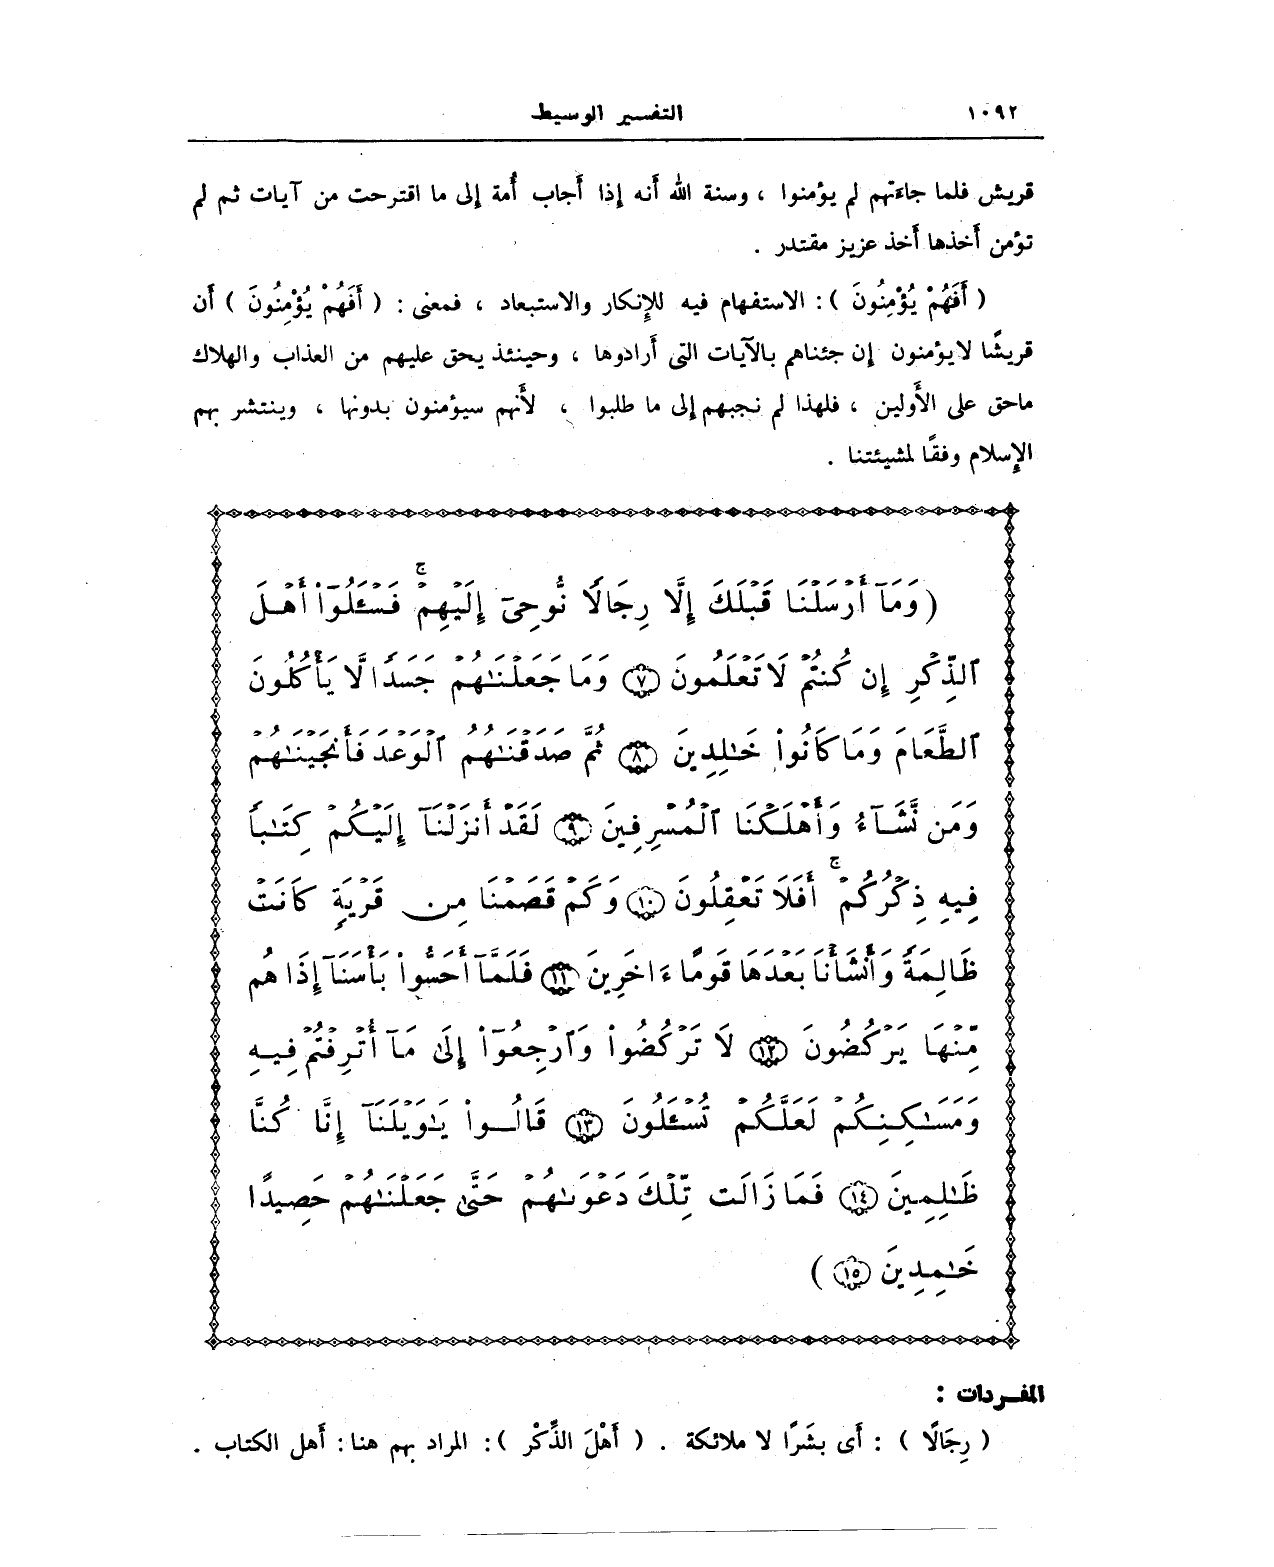 ١٠٩٢ التفسير الوسيط
قريش فلما جاءتهم لم يؤمنوا ، وسنة الله أنه إذا أجاب أُمة إلى ما اقترحت من آيات ثم لم
تؤمن أخذها أخذ عزيز مقتدر .
( أَفَهُمْ يُؤْمِنُونَ ) : الاستفهام فيه للإنكار والاستبعاد ، فمعنى : ( أَفَهُمْ يُؤْمِنُونَ ) أن
قريشًا لا يؤمنون إن جئناهم بالآيات التى أرادوها ، وحينئذ يحق عليهم من العذاب والهلاك
ماحق على الأولين ، فلهذا لم نجبهم إلى ما طلبوا ، لأنهم سيؤمنون بدونها ، وينتشر بهم
الإسلام وفقًا لمشيئتنا .
( وَمَآ أَرْسَلْنَا قَبْلَكَ إِلَّا رِجَالًا نُّوحِىٓ إِلَيْهِمْ ۚ فَسْـَٔلُوٓا۟ أَهْلَ
ٱلذِّكْرِ إِن كُنتُمْ لَا تَعْلَمُونَ ٧ وَمَا جَعَلْنَـٰهُمْ جَسَدًا لَّا يَأْكُلُونَ
ٱلطَّعَامَ وَمَا كَانُوا۟ خَـٰلِدِينَ ٨ ثُمَّ صَدَقْنَـٰهُمُ ٱلْوَعْدَ فَأَنجَيْنَـٰهُمْ
وَمَن نَّشَآءُ وَأَهْلَكْنَا ٱلْمُسْرِفِينَ ٩ لَقَدْ أَنزَلْنَآ إِلَيْكُمْ كِتَـٰبًا
فِيهِ ذِكْرُكُمْ ۚ أَفَلَا تَعْقِلُونَ ١٠ وَكَمْ قَصَمْنَا مِن قَرْيَةٍ كَانَتْ
ظَالِمَةً وَأَنشَأْنَا بَعْدَهَا قَوْمًا ءَاخَرِينَ ١١ فَلَمَّآ أَحَسُّوا۟ بَأْسَنَآ إِذَا هُم
مِّنْهَا يَرْكُضُونَ ١٢ لَا تَرْكُضُوا۟ وَٱرْجِعُوٓا۟ إِلَىٰ مَآ أُتْرِفْتُمْ فِيهِ
وَمَسَـٰكِنِكُمْ لَعَلَّكُمْ تُسْـَٔلُونَ ١٣ قَالُوا۟ يَـٰوَيْلَنَآ إِنَّا كُنَّا
ظَـٰلِمِينَ ١٤ فَمَا زَالَت تِّلْكَ دَعْوَىٰهُمْ حَتَّىٰ جَعَلْنَـٰهُمْ حَصِيدًا
خَـٰمِدِينَ ١٥ )
المفردات :
( رِجَالًا ) : أى بشَرًا لا ملائكة . ( أَهْلَ الذِّكْر ) : المراد بهم هنا : أهل الكتاب .